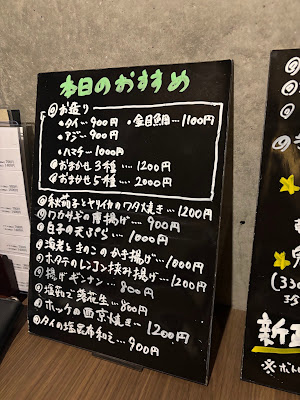 本日のおすすめ
◎お造り
・タイ…900円 ・金目鯛…1100円
・アジ…900円
・ハマチ…1000円
◎おまかせ3種…1200円
◎おまかせ5種…2000円
◎秋茄子とヤリイカのワタ焼き…1200円
◎ワカサギの唐揚げ…900円
◎白子の天ぷら…1000円
◎海老ときのこのかき揚げ…1000円
◎ホタテのレンコン挟み揚げ…1200円
◎揚げギンナン…800円
◎塩茹で落花生…800円
◎ホッケの西京焼き…1200円
◎タイの塩昆布和え…900円
(330
新